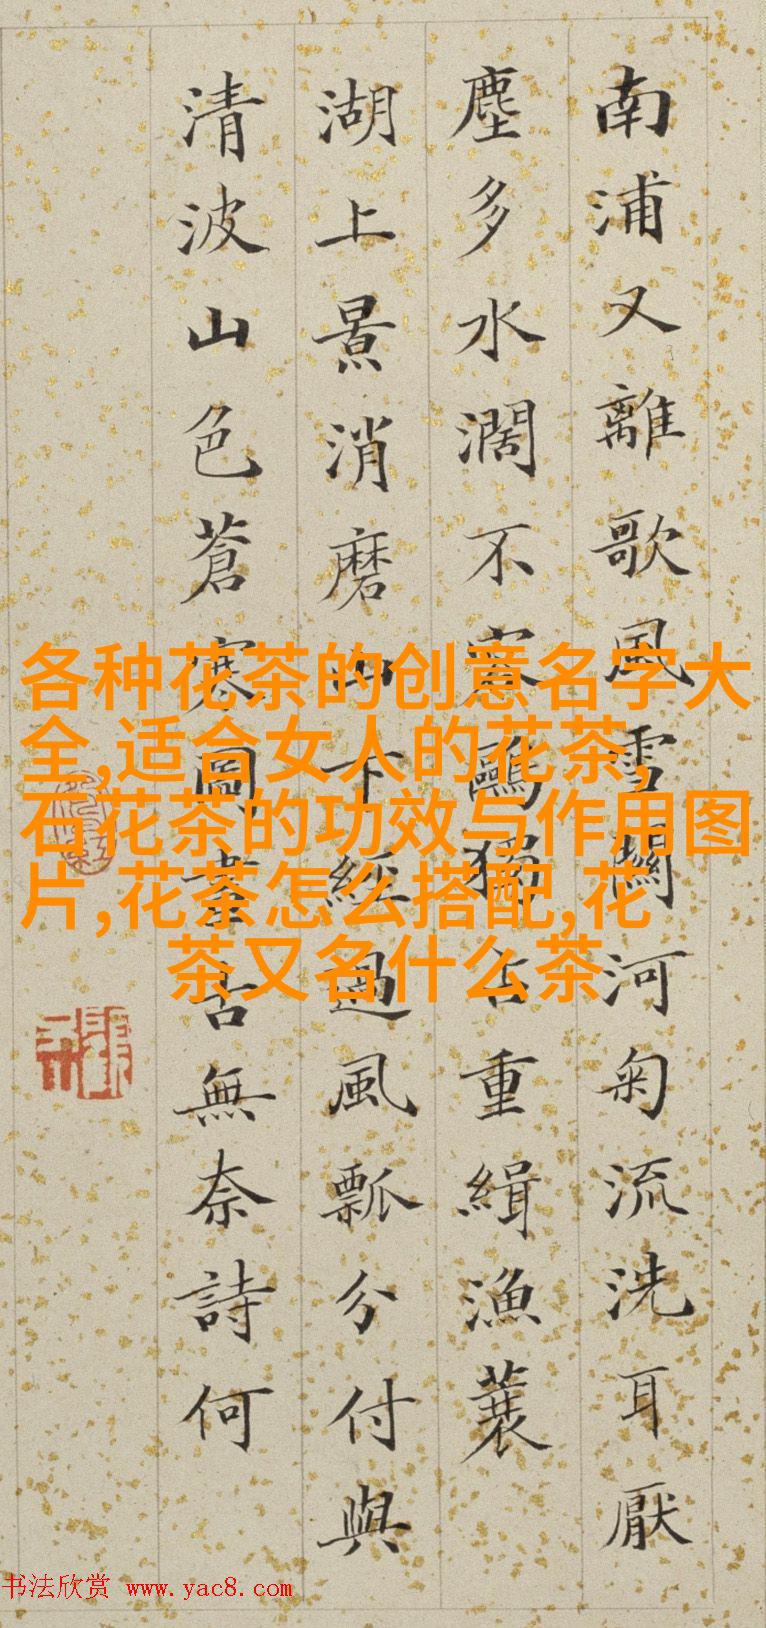 南浦又離歌風雪關河匊流洗耳厭
塵多水濶不容鷗獨占重緝漁蓑
湖上景消磨山下經過風瓢分付與
清波山色蒼寒圖畫古無奈詩何
各种花茶的创意名字大
全,适合女人的花茶,
石花茶的功效与作用图
片,花茶怎么搭配,花
茶又名什么茶
书法欣赏 www.yac8.com